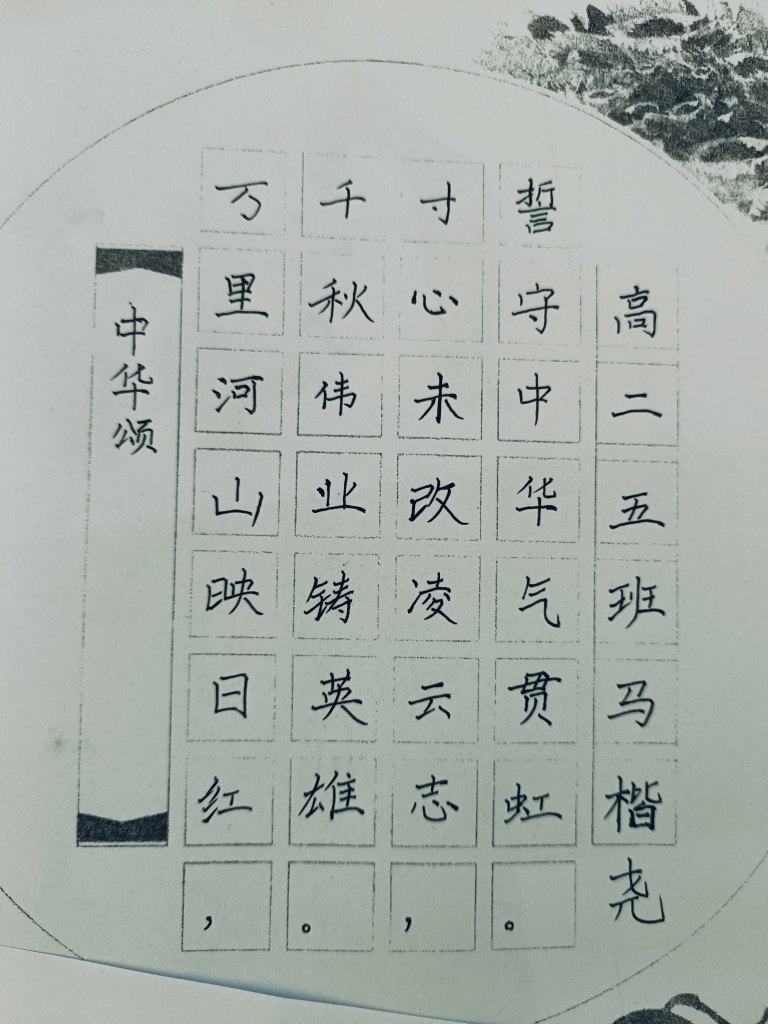 中华颂
万里河山映日红，
千秋伟业铸英雄。
寸心未改凌云志，
誓守中华气贯虹。
高二五班马楷尧